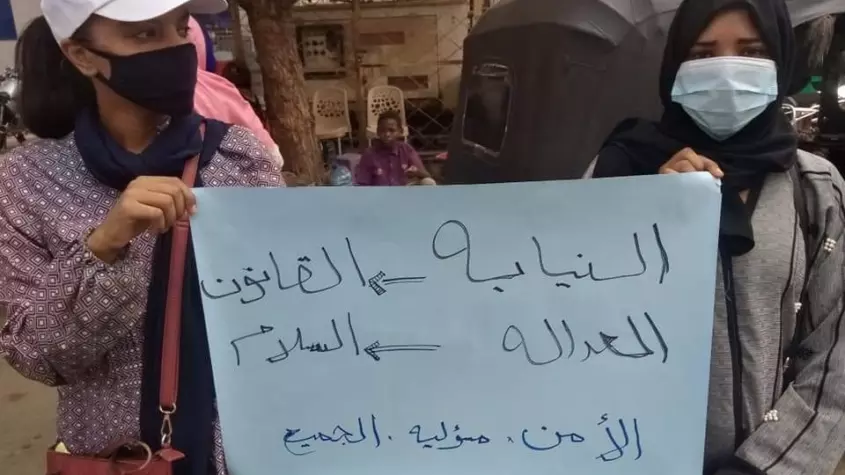 النيابه ← القانون
العداله ← السلام
الأمن، مسؤليه، الجميع